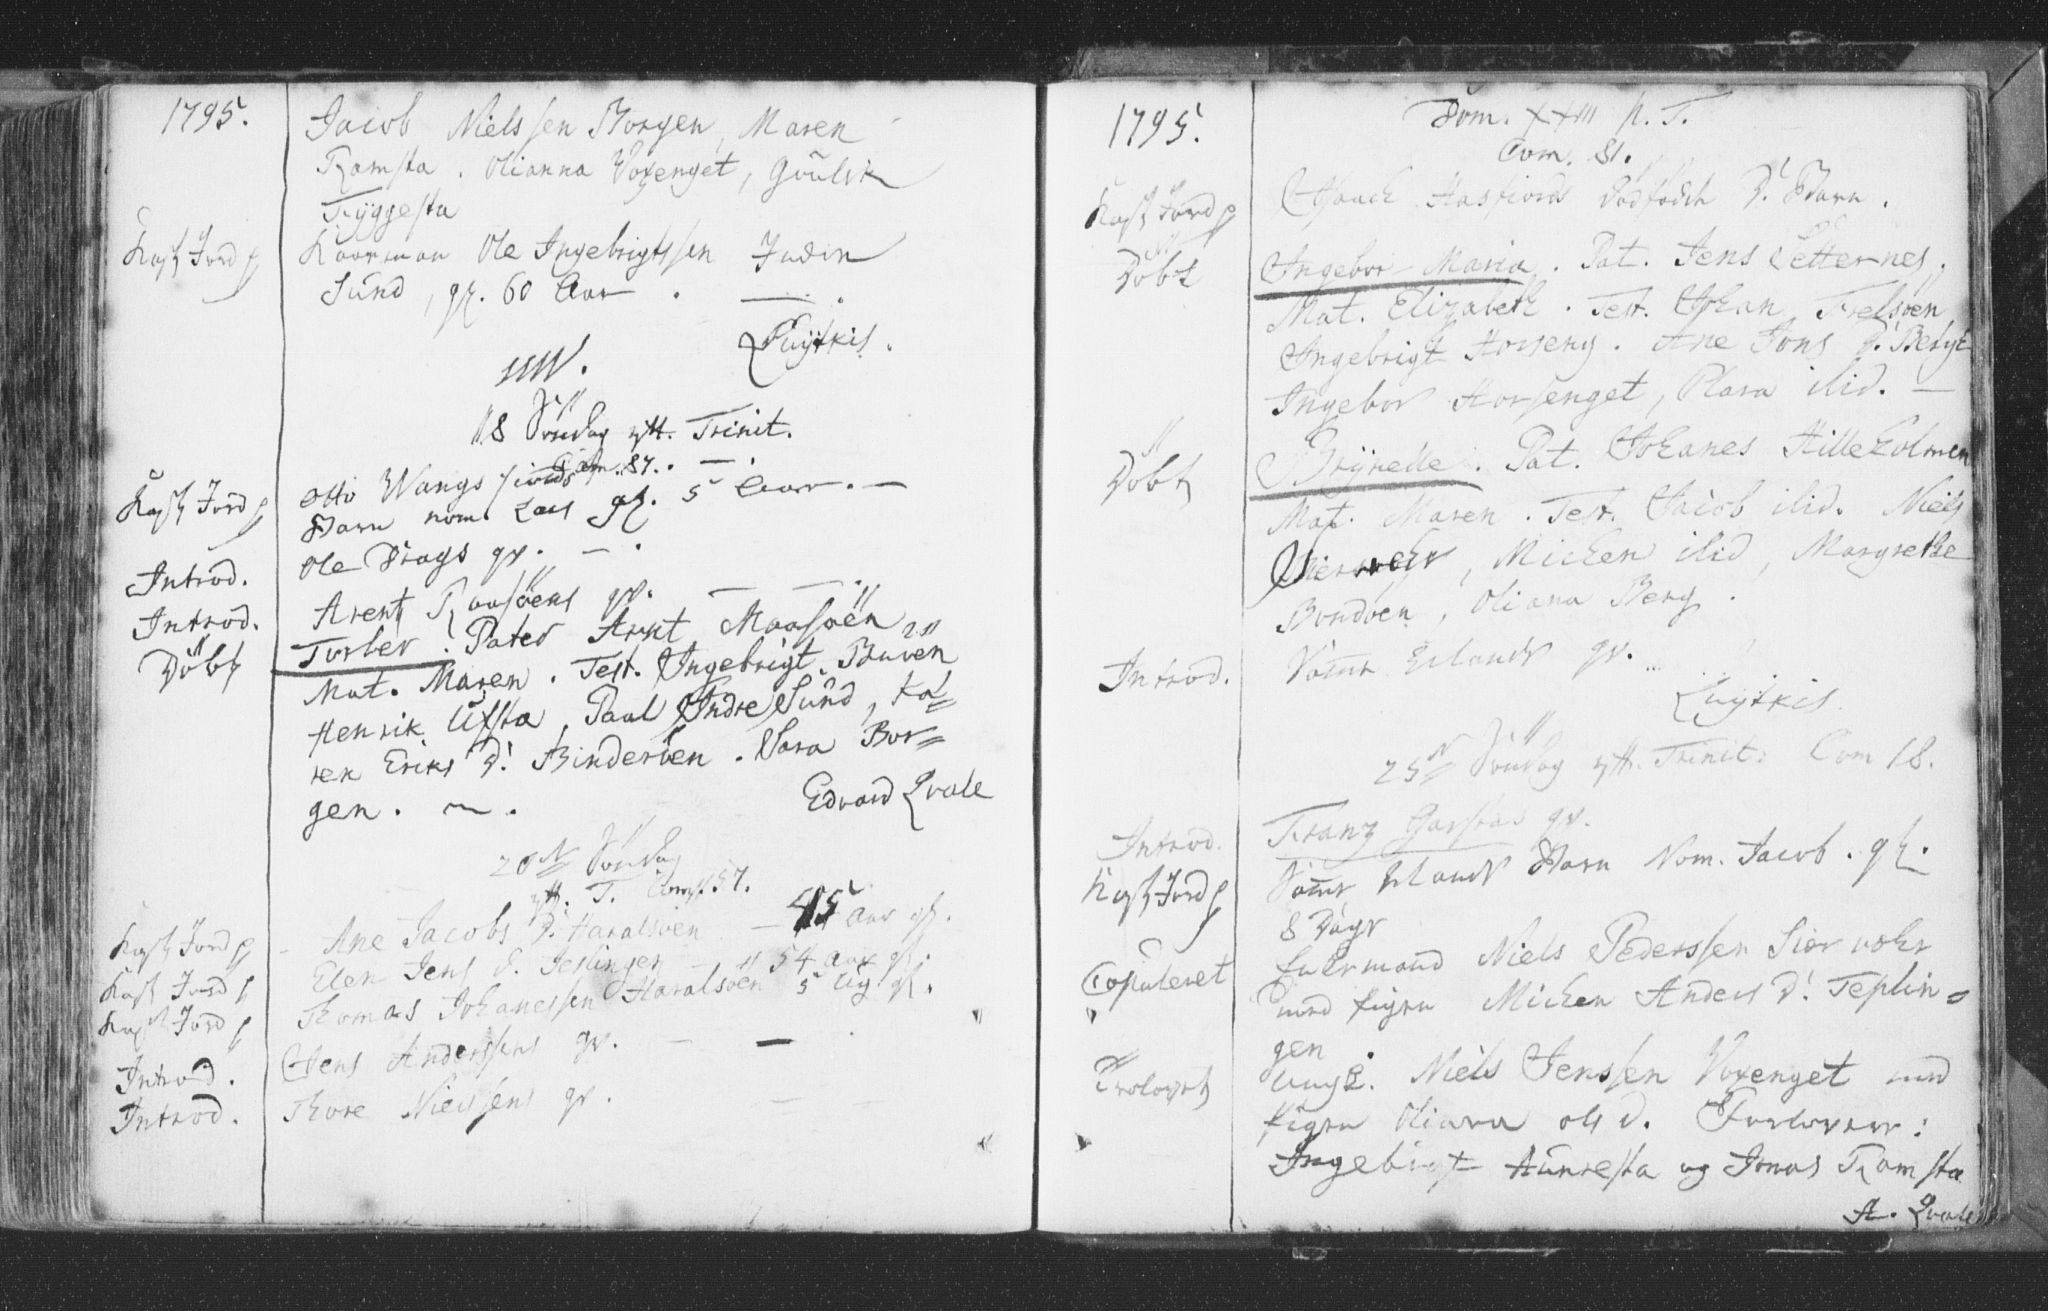 1795.
Jacob Nielssen Borgen, Maren
Ramsta. Olianna Voxenget, Gŭŭlik
Tryggesta
Kast Jord p Kaarmon Ole Ingebrigtssen Indre
Sŭnd, gl. 60 Aar. —
18 Söndag eftt. Trinit.
Com. 87. —
Kast Jord p Otto Wangsfiords
Barn nom. Lars gl. 5 Aar. —
Introd. Ole Drags qv. — .
Introd. Arent Raasöens qv. —
Döbt Torber. Pater Arnt Maasöen
Mat. Maren. Test. Ingebrigt Buvën
Henrik Ufsta, Paal Indre Sŭnd, Ka=
ren Eriks D! Binderöen. Sara Bor=
gen. — .
Edvard Qvale
20de Söndag
eftt. T. Com. 57.
Kast Jord p Ane Jacobs D! Haralsöen — 45 Aar gl.
Kast Jord p Elen Jens D. Teplingen — 54 Aar gl.
Kast Jord p Thomas Johanessen Haralsöen 5 Ug gl.
Introd. Jens Anderssens qv. — —
Introd. Thore Nielssens qv.
1795.
Dom. XXIII p. T.
Com. 81.
Kast Jord p Isaach Hasfiords Dödfödde D! Barn.
Döbt Ingebor Maria. Pat. Jens Setternes,
Mat. Elizabeth. Test. Johan Frelsöen
Ingebrigt Horseng. Ane Jons D!
Ingebor Horsenget, Clara ilid. —
Döbt Brÿnelle. Pat. Johanes Hilleholmen
Mat. Maren. Test. Jacob ilid. Niels
Sierwehr, Micken ilid, Margrethe
Bondöen, Oliana Berg.
Introd. Erlands qv.
25de Söndag eftt. Trinit: Com 18.
Introd. Franz Garstas qv.
Kast Jord p Erlands Barn Nom. Jacob. gl.
8 Dage
Copuleret Enkemand Niels Pederssen Sierwehr
med Pigen Micken Anders D! Teplin=
gen
Trolovet Ungk. Niels Jenssen Voxenget med
Pigen Oliana Ols D. Forlovere:
Ingebrigt Aŭnesta og Jonas Ramsta
A. Qvale